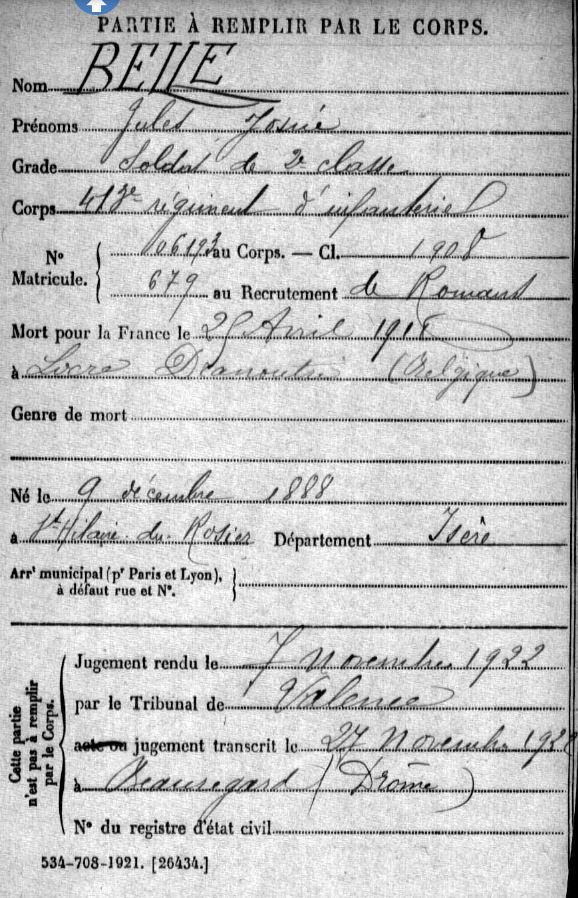 PARTIE À REMPLIR PAR LE CORPS.
Nom BELLE
Prénoms Jules Josué
Grade Soldat de 2e classe
Corps 413e régiment d'infanterie
N° Matricule. 06193 au Corps. — Cl. 1908
679 au Recrutement de Romans
Mort pour la France le 25 Avril 1918
à Locre Dranoutre (Belgique)
Genre de mort
Né le 9 décembre 1888
à St Hilaire du Rosier Département Isère
Arrt municipal (pr Paris et Lyon),
à défaut rue et N°.
Cette partie n'est pas à remplir par le Corps.
Jugement rendu le 7 Novembre 1922
par le Tribunal de Valence
acte ou jugement transcrit le 27 Novembre
à Beauregard (Drôme)
N° du registre d'état civil
534-708-1921. [26434.]